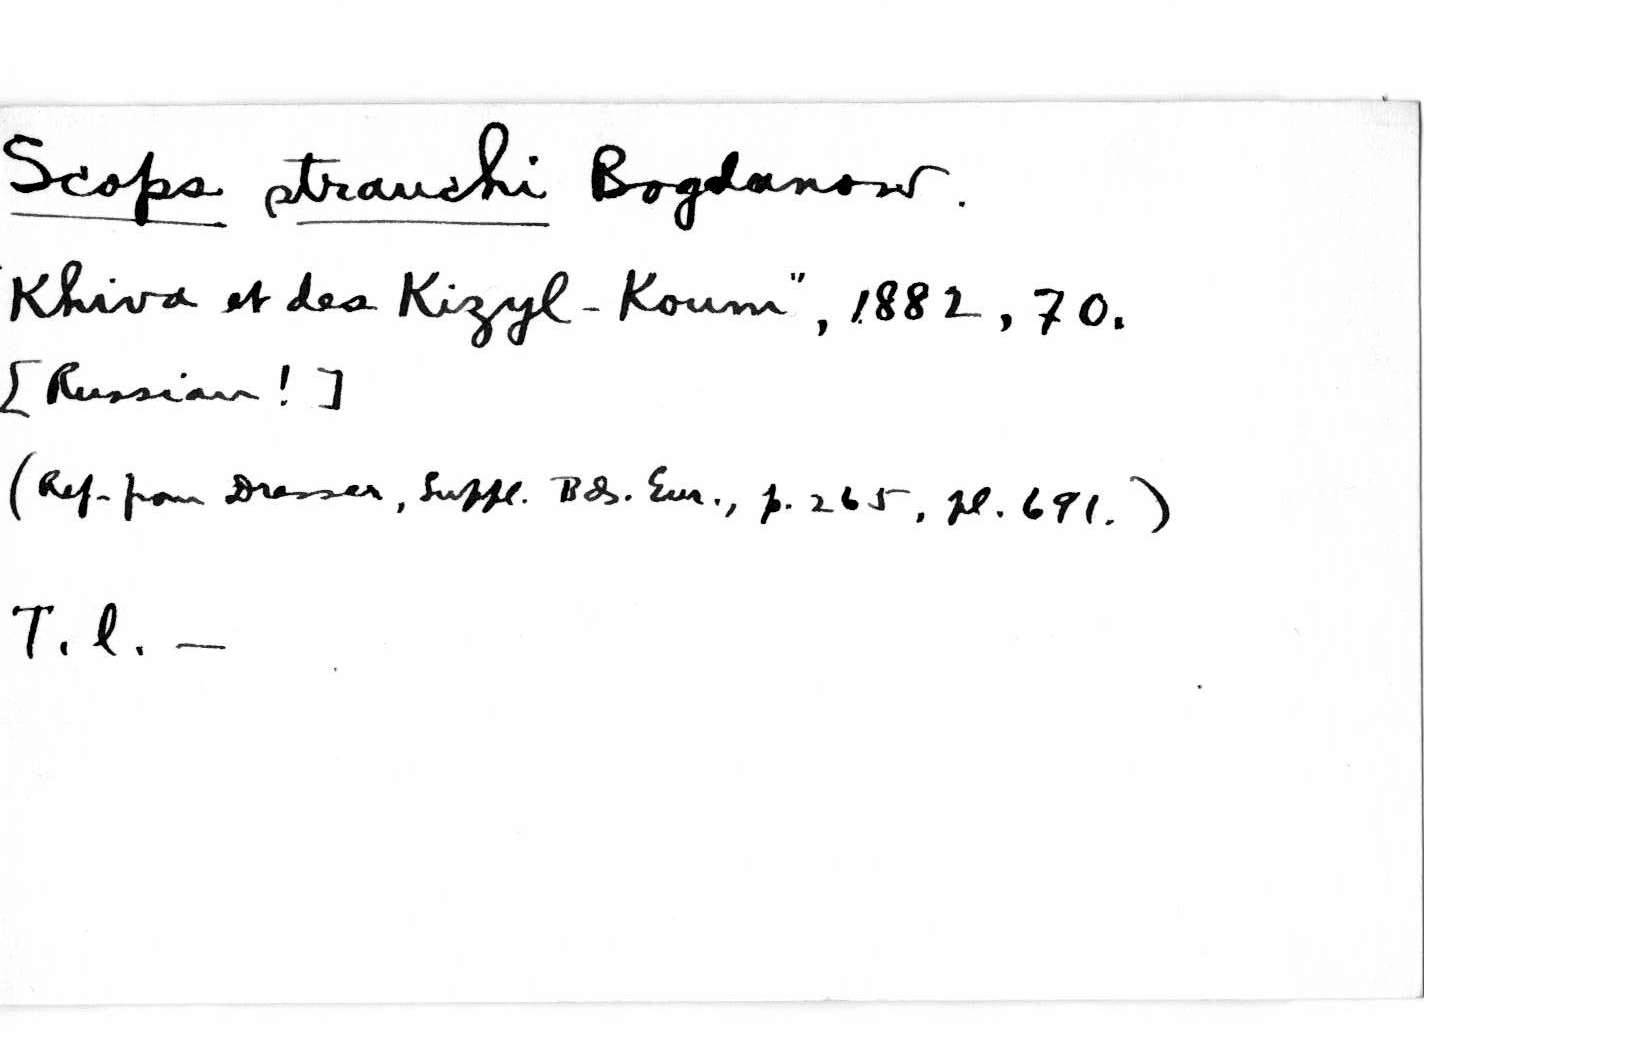 Scops strauchi Bogdanow.
"Khiva et des Kizyl-Koum", 1882, 70.
[Russian!]
(Ref. from Dresser, Suppl. Bds. Eur., p. 265, pl. 691.)
T. l. —